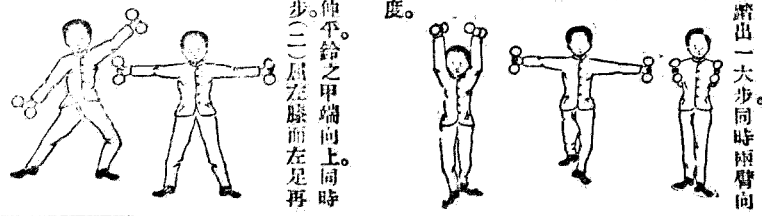 踏出一大步。同時兩臂向
度。
伸平。鈴之甲端向上。同時
步(二)屈左膝而左足再